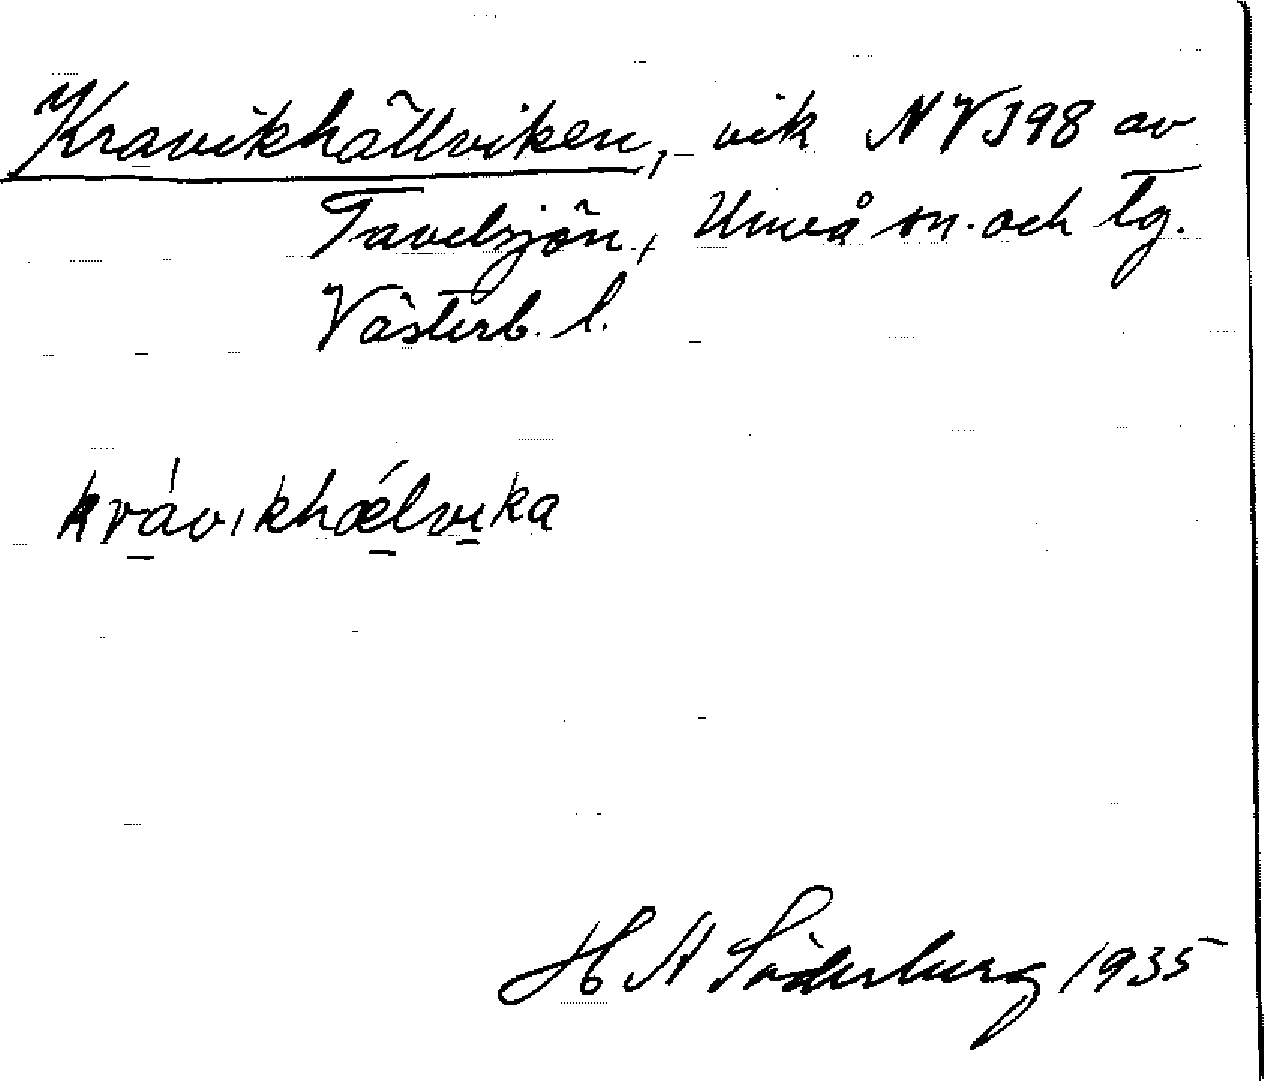 Kravikhällviken, vik NV J98 av
Tavelsjön, Umeå sn. och tg.
Västerb. l.
krávikhǽlvika
H A Söderberg 1935